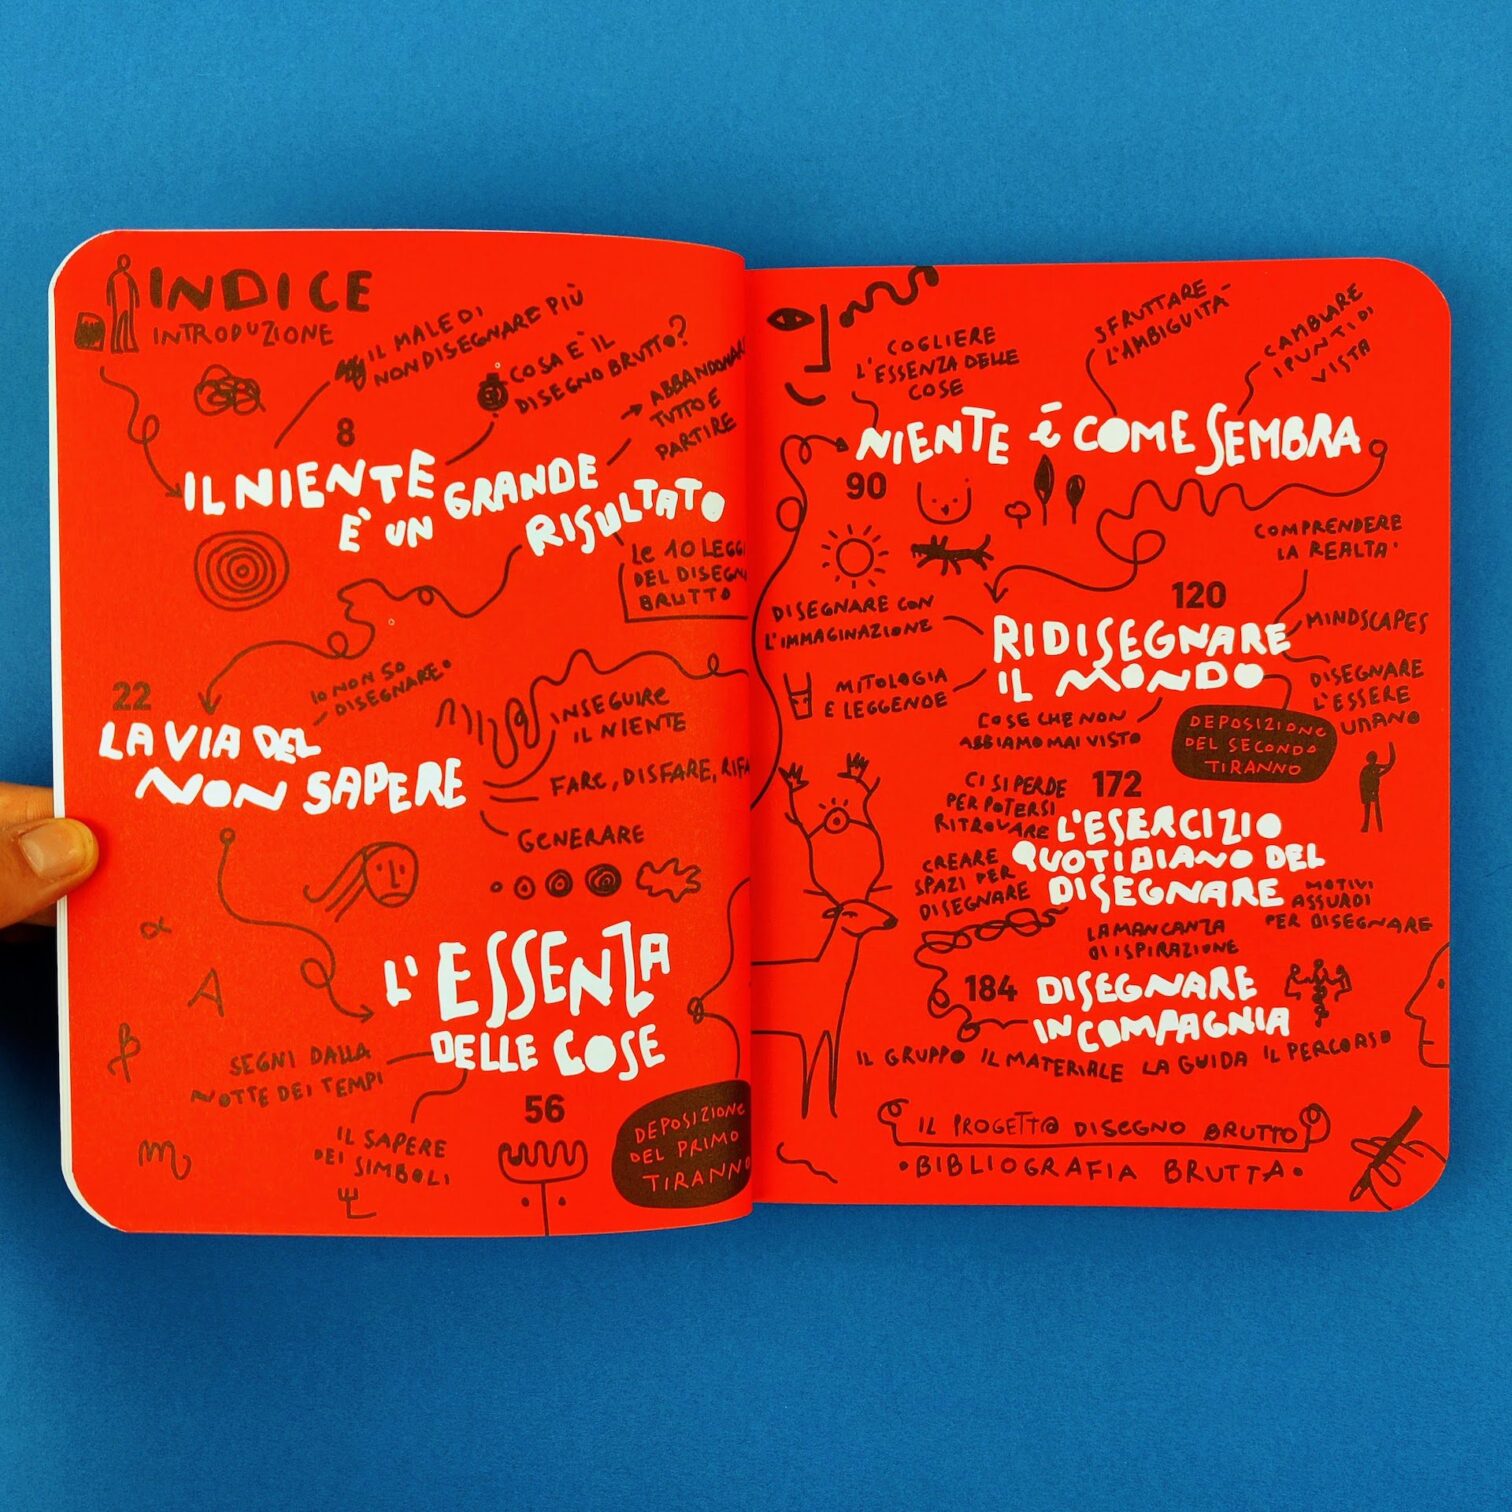 INDICE
INTRODUZIONE
IL MALE DI
NON DISEGNARE PIÙ
COSA E' IL
DISEGNO BRUTTO?
→ ABBANDONARE
TUTTO E
PARTIRE
8
IL NIENTE
E' UN
GRANDE
RISULTATO
le 10 LEGGI
DEL DISEGNO
BRUTTO
22
IO NON SO
DISEGNARE.
LA VIA DEL
NON SAPERE
INSEGUIRE
IL NIENTE
FARE, DISFARE, RIFA
GENERARE
α
A
β
m
L'ESSENZA
DELLE COSE
SEGNI DALLA
NOTTE DEI TEMPI
56
IL SAPERE
DEI SIMBOLI
DEPOSIZIONE
DEL PRIMO
TIRANNO
COGLIERE
L'ESSENZA DELLE
COSE
SFRUTTARE
L'AMBIGUITA'
CAMBIARE
I PUNTI DI
VISTA
NIENTE è COME SEMBRA
90
COMPRENDERE
LA REALTA'
120
DISEGNARE CON
L'IMMAGINAZIONE
RIDISEGNARE
IL MONDO
MINDSCAPES
MITOLOGIA
E LEGGENDE
DISEGNARE
L'ESSERE
UMANO
COSE CHE NON
ABBIAMO MAI VISTO
DEPOSIZIONE
DEL SECONDO
TIRANNO
CI SI PERDE
PER POTERSI
RITROVARE
172
L'ESERCIZIO
QUOTIDIANO DEL
DISEGNARE
CREARE
SPAZI PER
DISEGNARE
MOTIVI
ASSURDI
PER DISEGNARE
LA MANCANZA
DI ISPIRAZIONE
184
DISEGNARE
IN COMPAGNIA
IL GRUPPO IL MATERIALE LA GUIDA IL PERCORSO
IL PROGETTO DISEGNO BRUTTO
•BIBLIOGRAFIA BRUTTA•